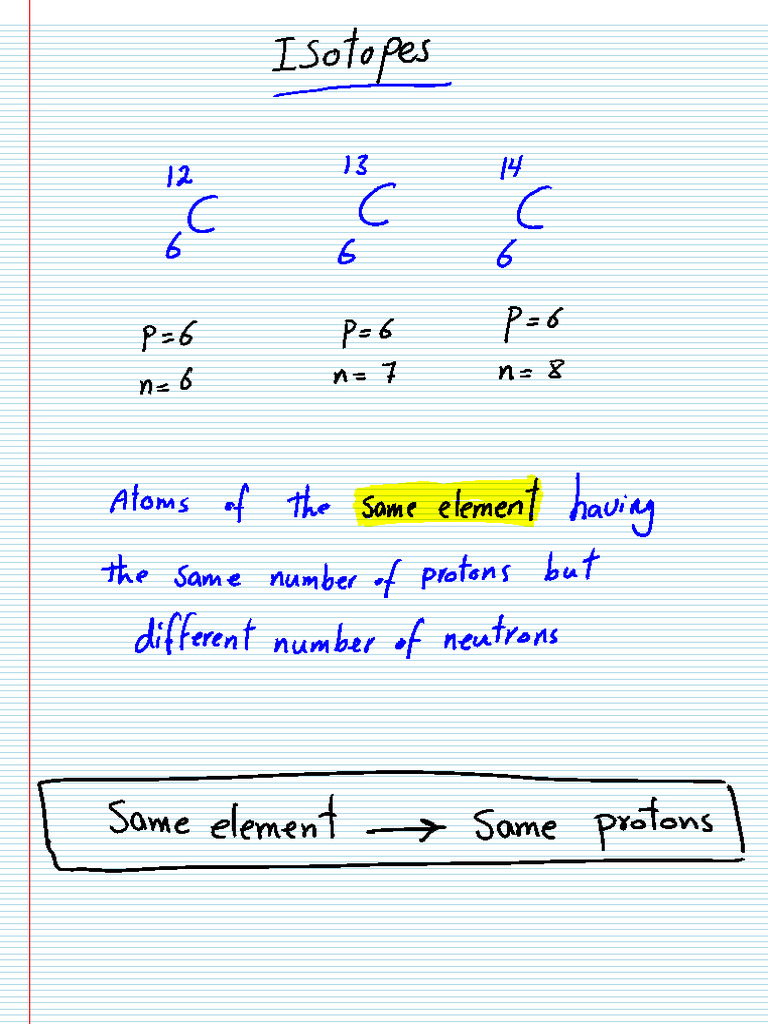 Isotopes
12 13 14
C C C
6 6 6
P=6 P=6 P=6
n=6 n=7 n=8
Atoms of the same element having
the same number of protons but
different number of neutrons
Same element → Same protons